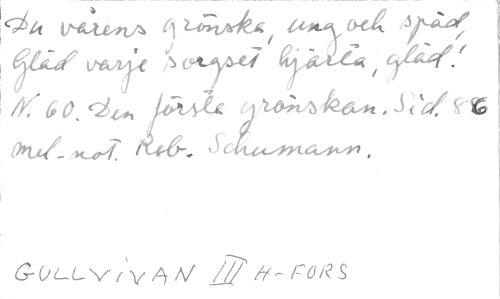 Du vårens grönska, ung och späd,
Gläd varje sorgset hjärta, gläd!
N. 60. Den första grönskan. Sid. 86
mel-not. Rob. Schumann.
GULLVIVAN III H-FORS